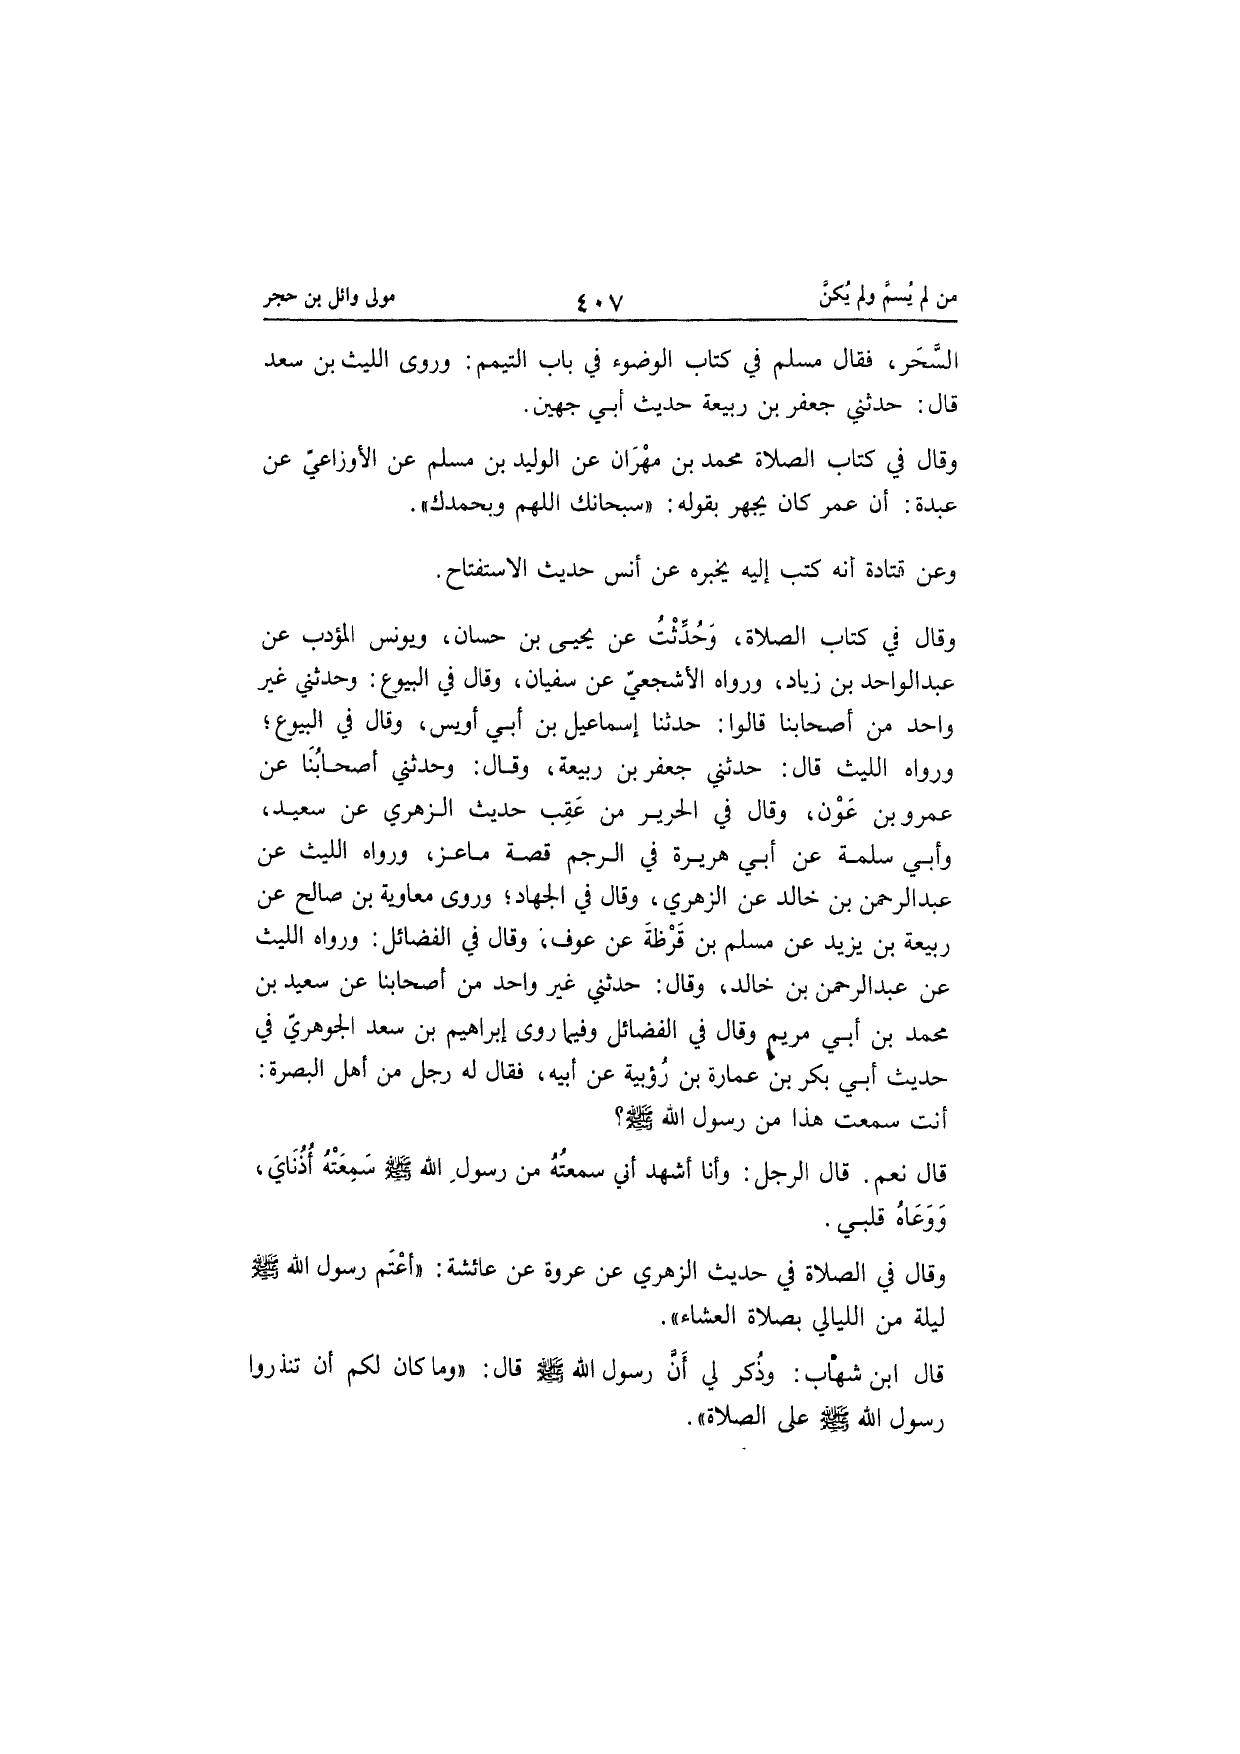 من لم يُسمَّ ولم يُكنَّ ٤٠٧ مولى وائل بن حجر
السَّحَر، فقال مسلم في كتاب الوضوء في باب التيمم: وروى الليث بن سعد
قال: حدثني جعفر بن ربيعة حديث أبي جهين.
وقال في كتاب الصلاة محمد بن مهْرَان عن الوليد بن مسلم عن الأوزاعيّ عن
عبدة: أن عمر كان يجهر بقوله: «سبحانك اللهم وبحمدك».
وعن قتادة أنه كتب إليه يخبره عن أنس حديث الاستفتاح.
وقال في كتاب الصلاة، وَحُدِّثْتُ عن يحيى بن حسان، ويونس المؤدب عن
عبدالواحد بن زياد، ورواه الأشجعيّ عن سفيان، وقال في البيوع: وحدثني غير
واحد من أصحابنا قالوا: حدثنا إسماعيل بن أبي أويس، وقال في البيوع؛
ورواه الليث قال: حدثني جعفر بن ربيعة، وقال: وحدثني أصحابُنَا عن
عمرو بن عَوْن، وقال في الحرير من عَقِب حديث الزهري عن سعيد،
وأبي سلمة عن أبي هريرة في الرجم قصة ماعز، ورواه الليث عن
عبدالرحمن بن خالد عن الزهري، وقال في الجهاد؛ وروى معاوية بن صالح عن
ربيعة بن يزيد عن مسلم بن قَرْظةَ عن عوف، وقال في الفضائل: ورواه الليث
عن عبدالرحمن بن خالد، وقال: حدثني غير واحد من أصحابنا عن سعيد بن
محمد بن أبي مريم وقال في الفضائل وفيما روى إبراهيم بن سعد الجوهريّ في
حديث أبي بكر بن عمارة بن رُؤبية عن أبيه، فقال له رجل من أهل البصرة:
أنت سمعت هذا من رسول الله ﷺ؟
قال نعم. قال الرجل: وأنا أشهد أني سمعتُهُ من رسول الله ﷺ سَمِعَتْهُ أُذُنَايَ،
وَوَعَاهُ قلبي.
وقال في الصلاة في حديث الزهري عن عروة عن عائشة: «أعْتَم رسول الله ﷺ
ليلة من الليالي بصلاة العشاء».
قال ابن شهاب: وذُكر لي أَنَّ رسول الله ﷺ قال: «وما كان لكم أن تنذروا
رسول الله ﷺ على الصلاة».